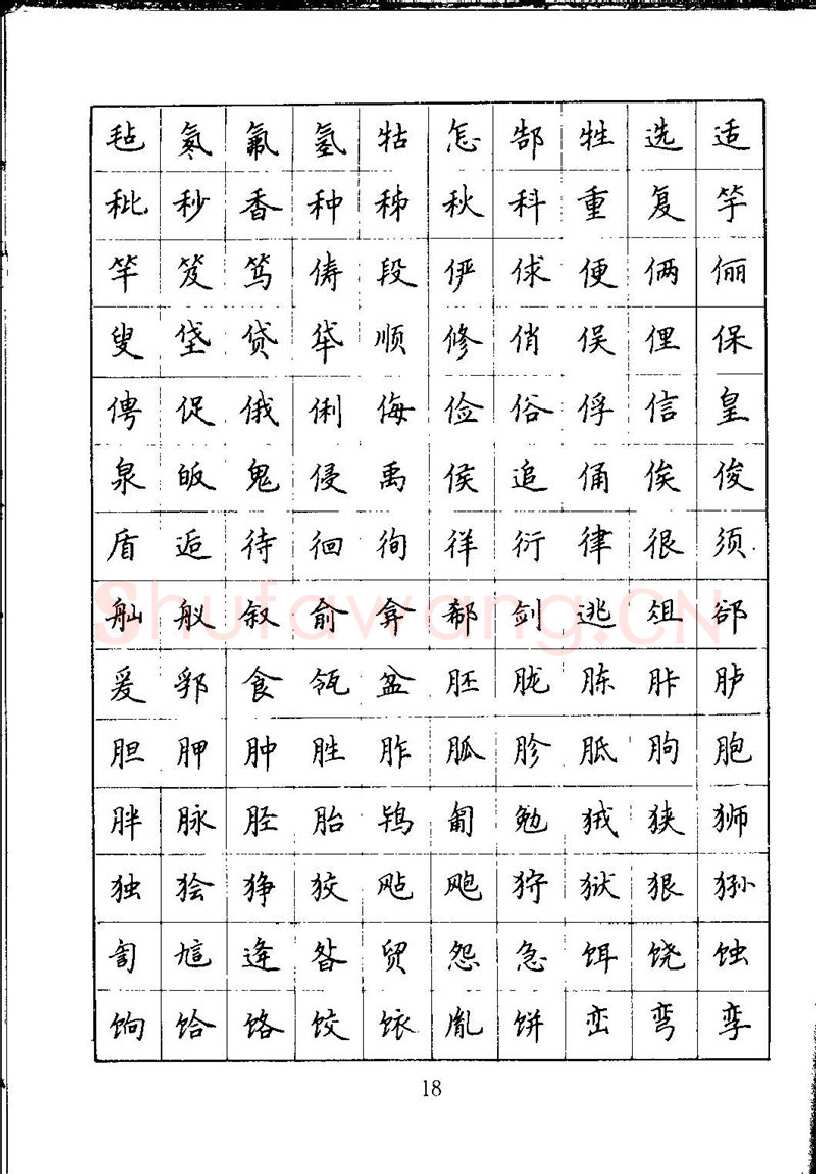 毡氡氟氢牯怎郜牲选适
秕秒香种秭秋科重复竽
竿笈笃俦段俨俅便俩俪
叟垡贷牮顺修俏俣俚保
俜促俄俐侮俭俗俘信皇
泉皈鬼侵禹侯追俑俟俊
盾逅待徊徇徉衍律很须
舢舣叙俞弇郗剑逃俎郤
爰郛食瓴盆胚胧胨胩胪
胆胛肿胜胙胍胗胝朐胞
胖脉胫胎鸨匍勉狨狭狮
独狯狰狡飐飑狩狱狠狲
訇訄逄昝贸怨急饵饶蚀
饷饸饹饺饻胤饼峦弯孪
18
shufawang.CN